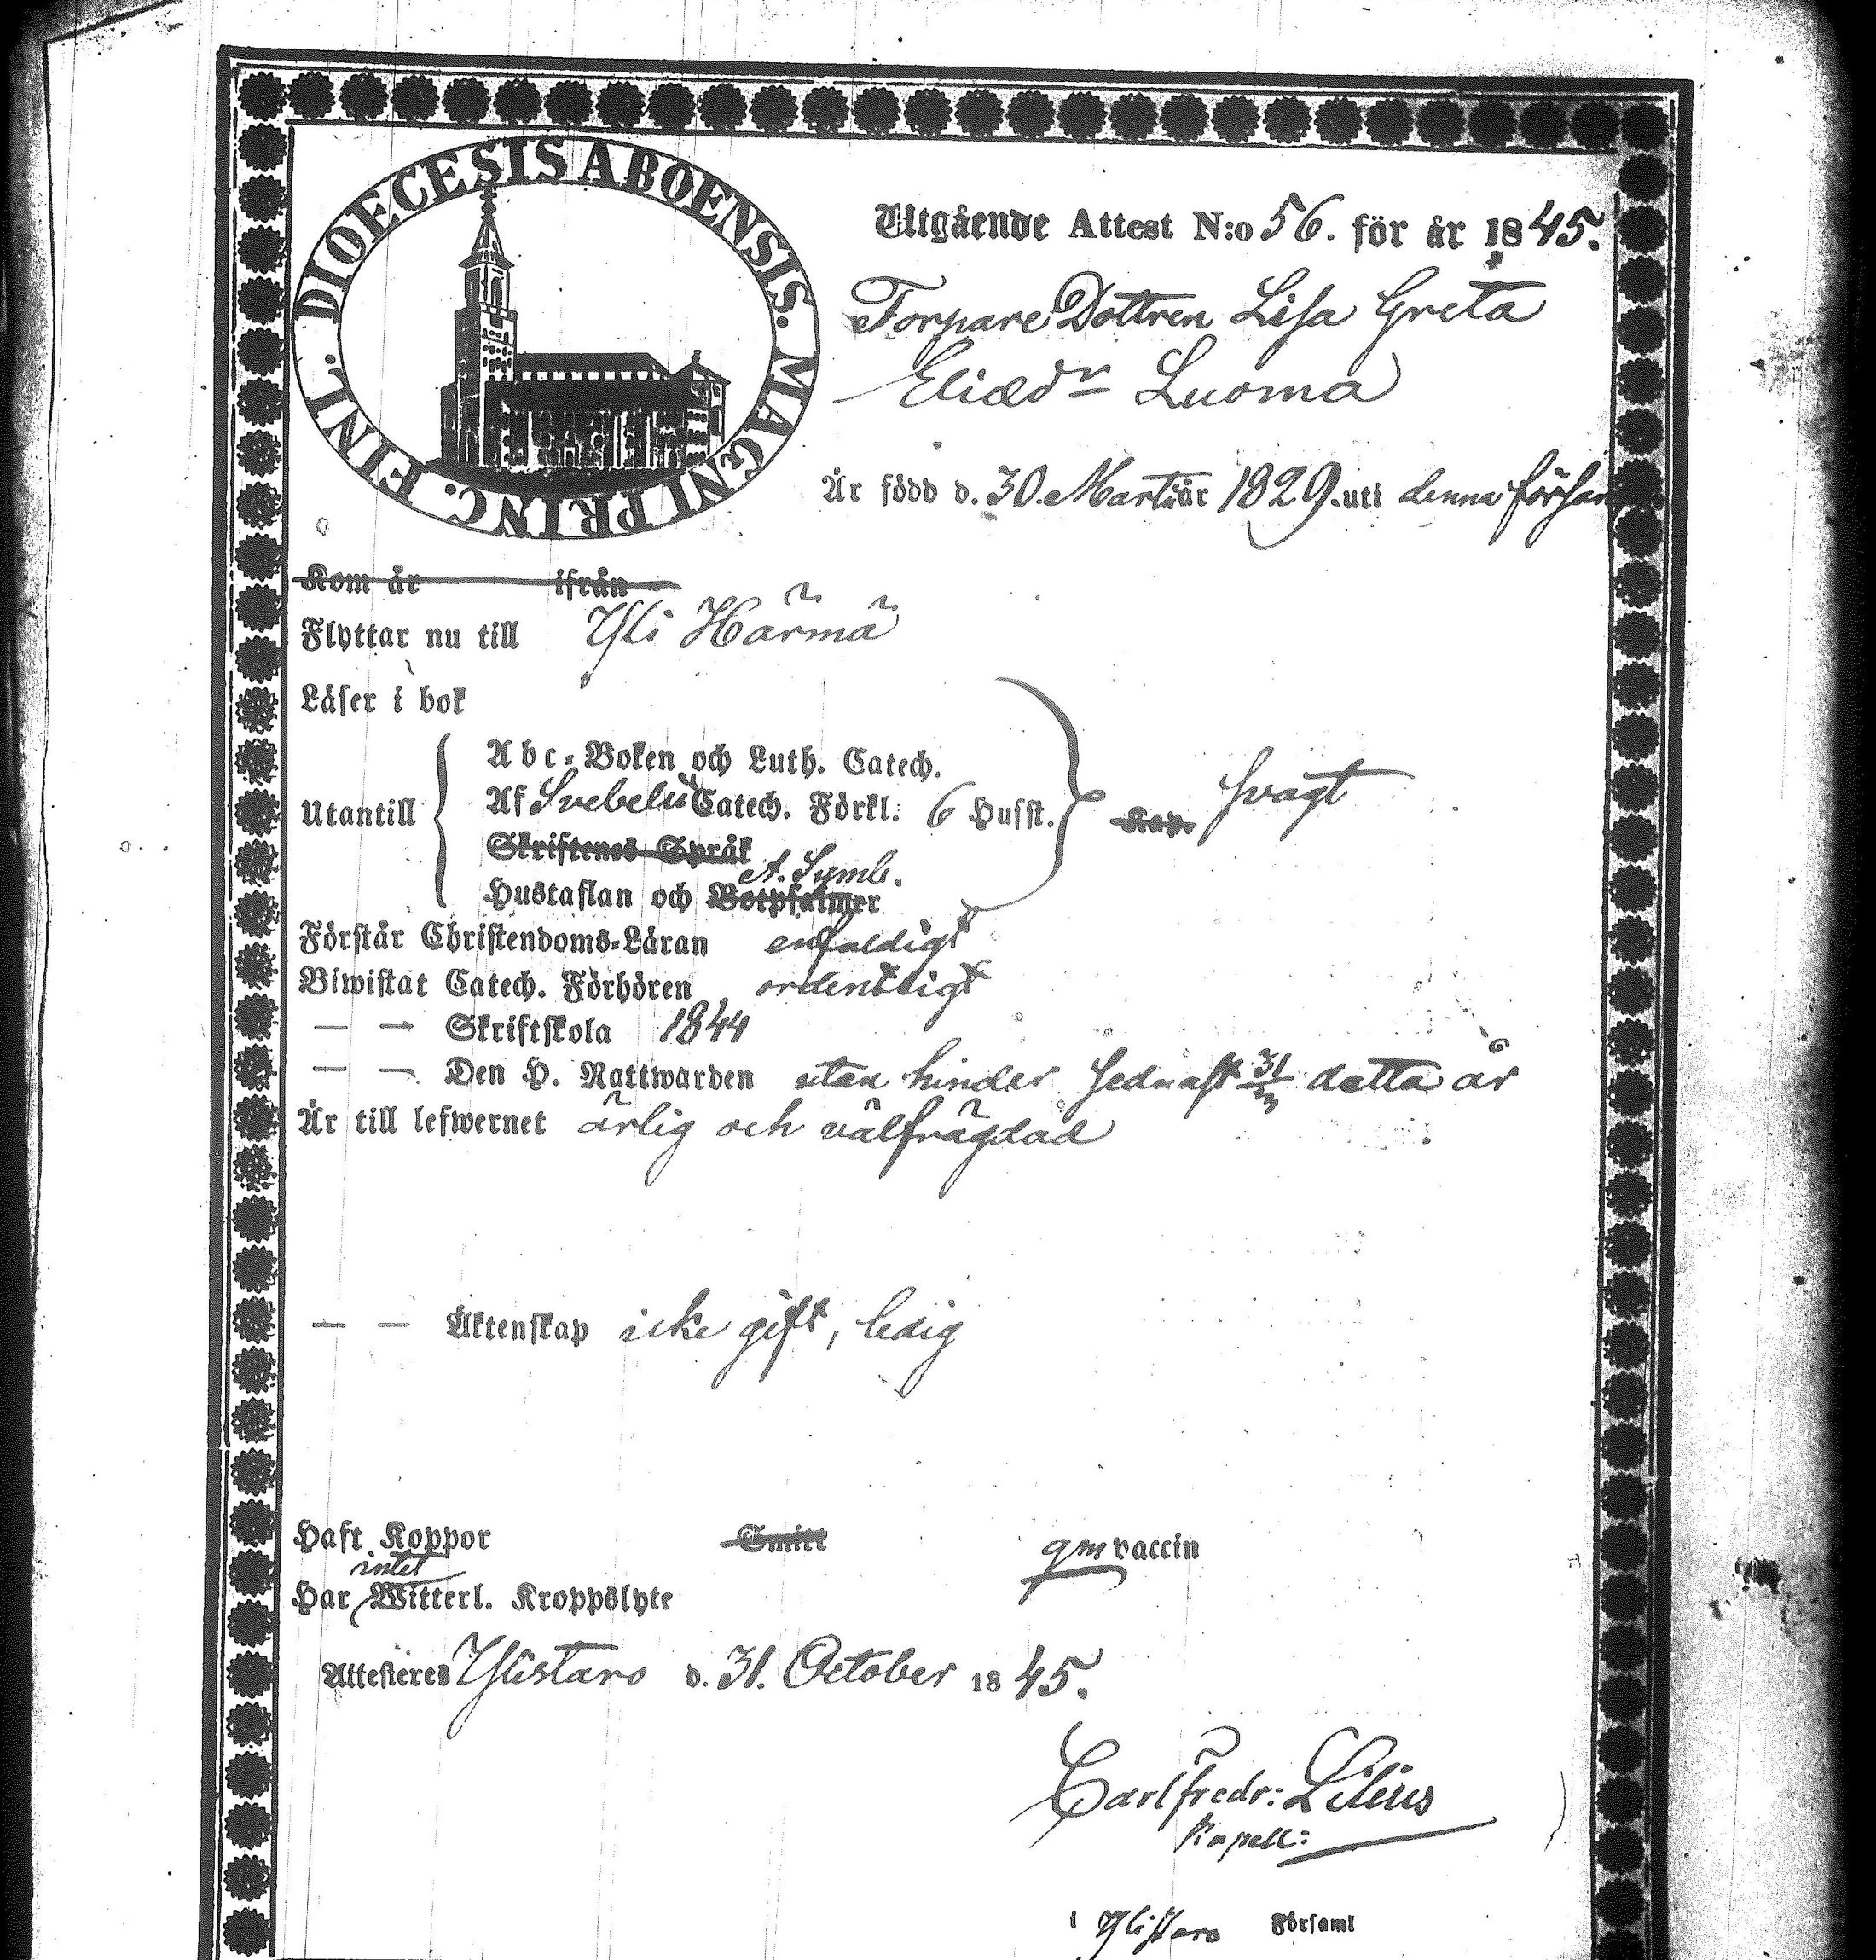 DIOECESIS ABOENSIS. MAGNI PRINC. FINL.
Utgående Attest N:o 56. för år 1845.
Torpare Dottren Lisa Greta
Eliædr Luoma
Är född d. 30. Martii år 1829. uti denna försam
Kom år ifrån
Flyttar nu till Yli Härmä
Läser i bok
Abc-Boken och Luth. Catech.
Utantill Af Svebelii Catech. Förkl. 6 Husst. svagt
Skriftenes Språk
A. Symb.
Hustaflan och Botpsalmer
Förstår Christendoms-Läran enfaldigt
Biwistat Catech. Förhören ordentligt
— — Skriftskola 1844
— — Den H. Nattwarden utan hinder sednast 31/3 detta år
Är till lefwernet ärlig och välfrägdad
— — Äktenskap icke gift, ledig
Haft Koppor Smitt gm vaccin
intet
Har Witterl. Kroppslyte
Attesteres Ylistaro d. 31. October 1845.
Carl Fredr: Lilius
Kapell:
i Ylistaro Församl